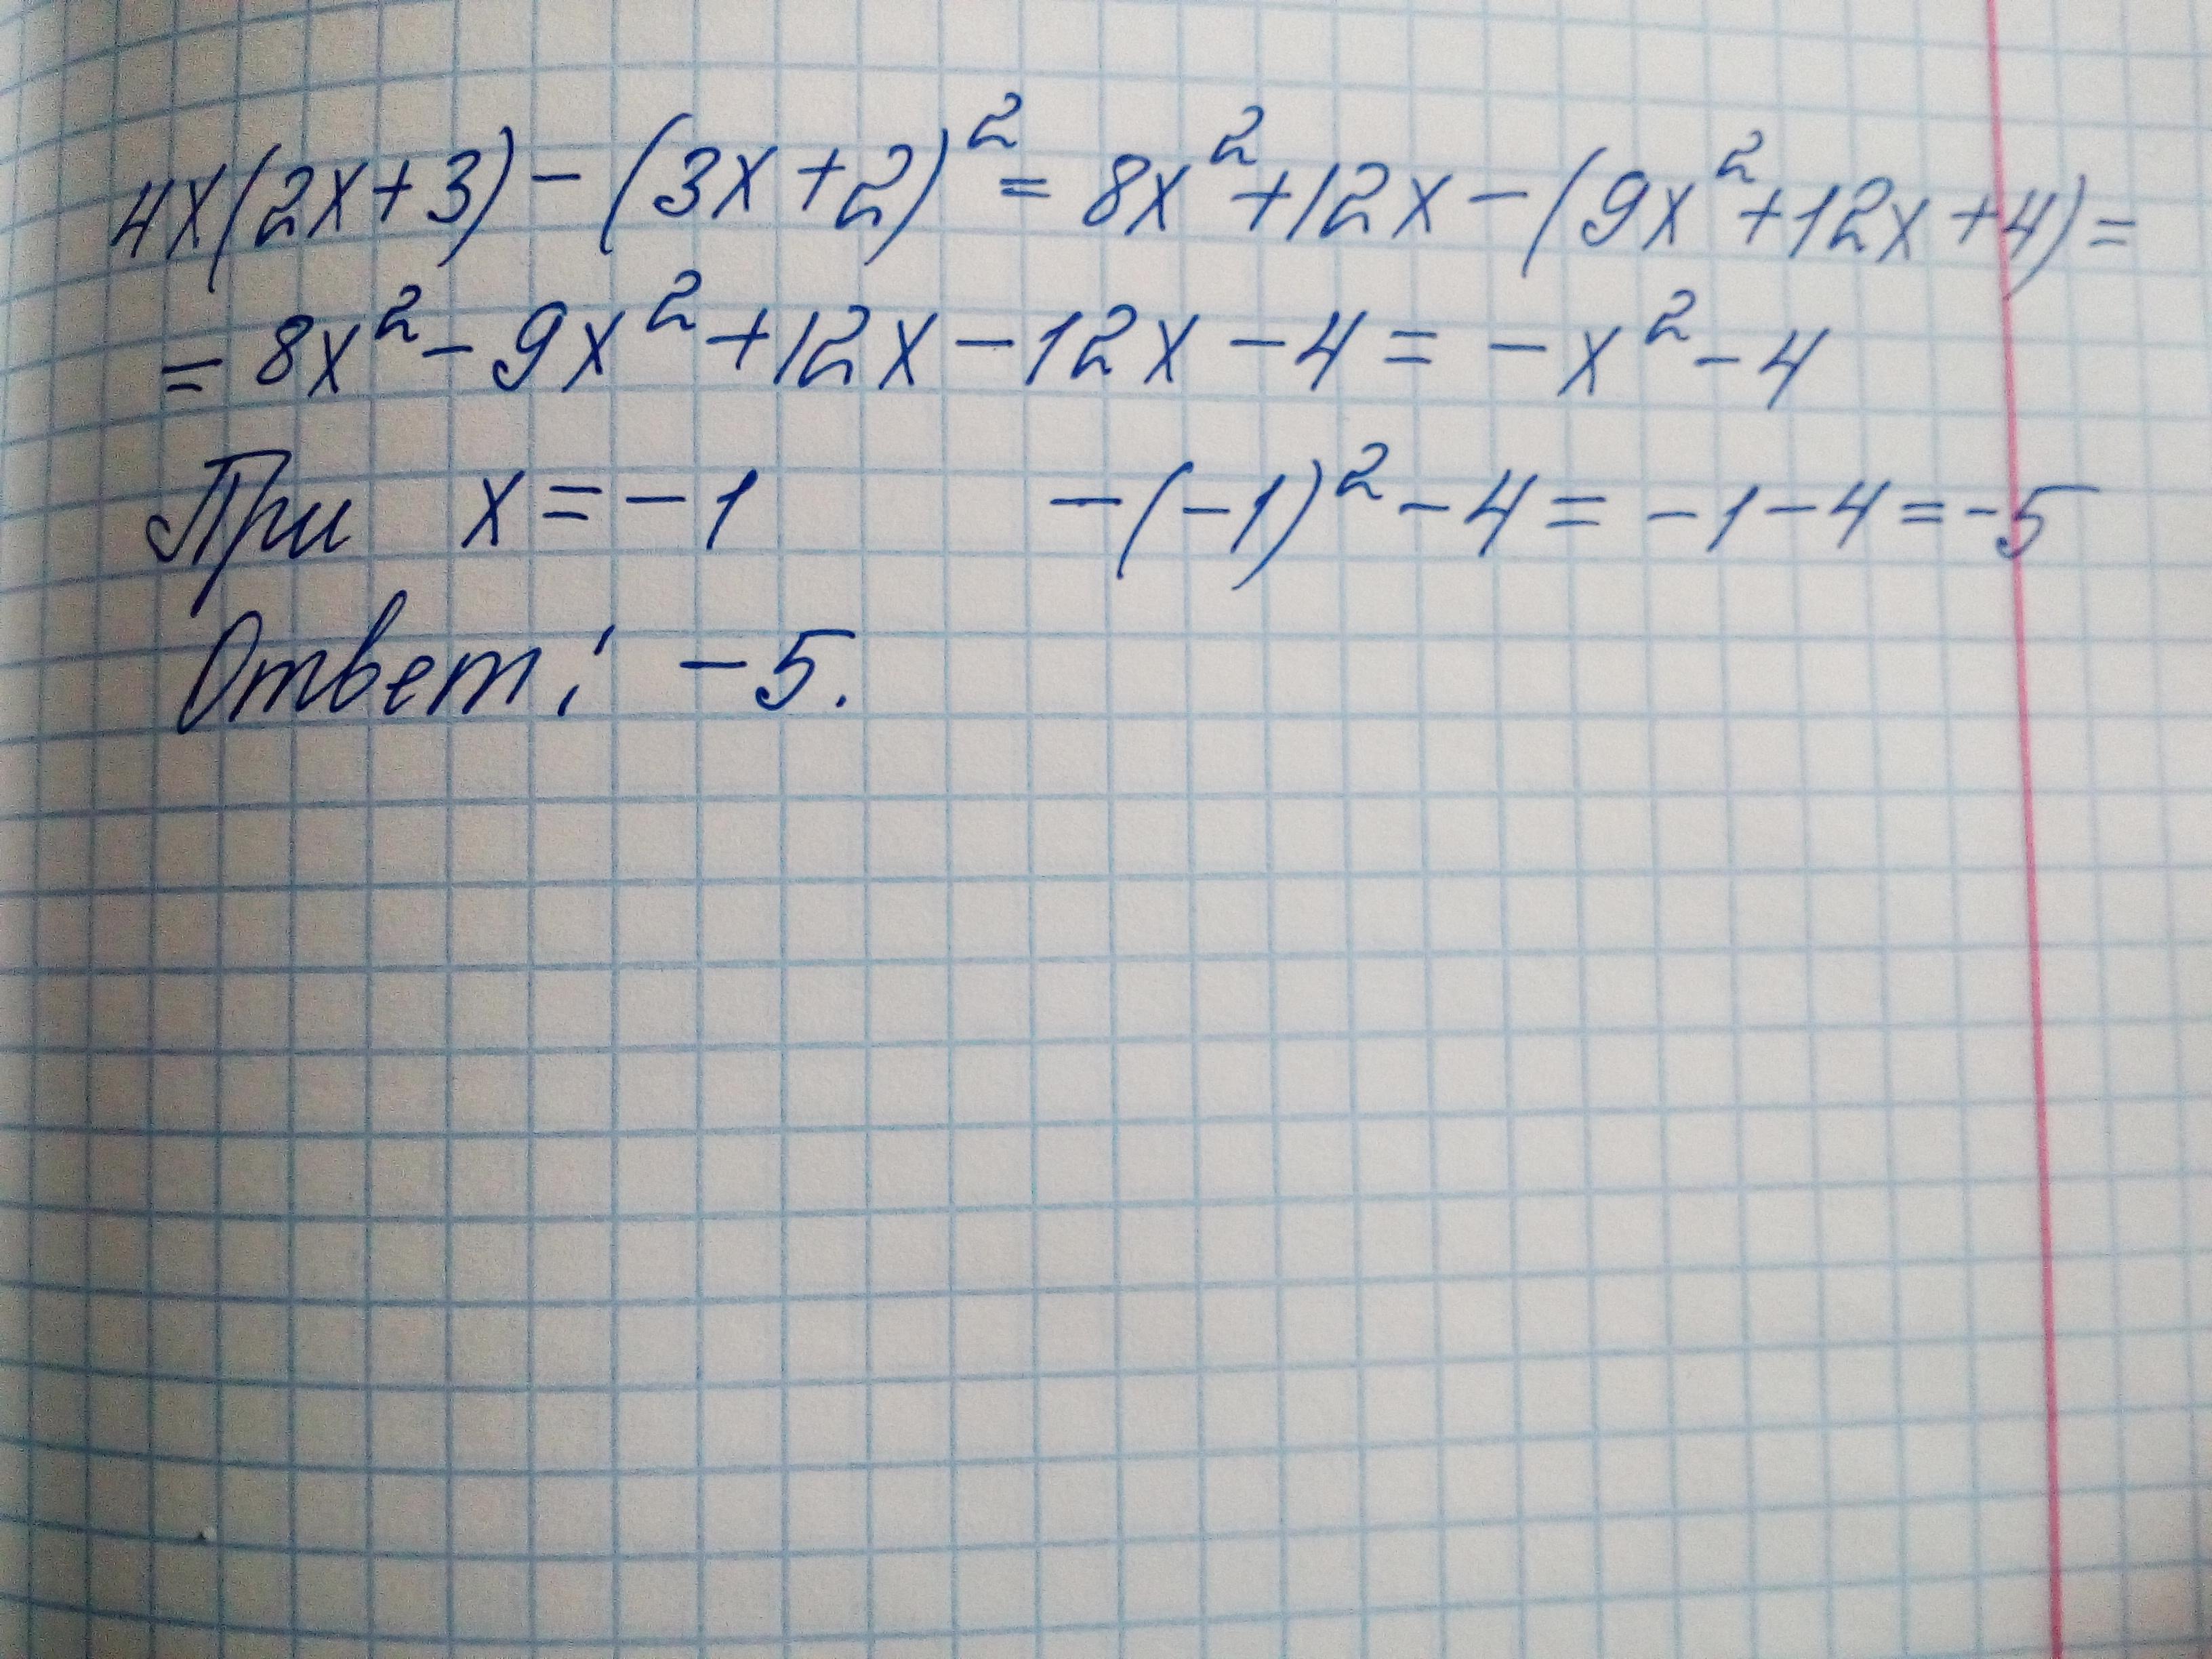 4x(2x+3)-(3x+2)²=8x²+12x-(9x²+12x+4)=
=8x²-9x²+12x-12x-4=-x²-4
При x=-1 -(-1)²-4=-1-4=-5
Ответ: -5.